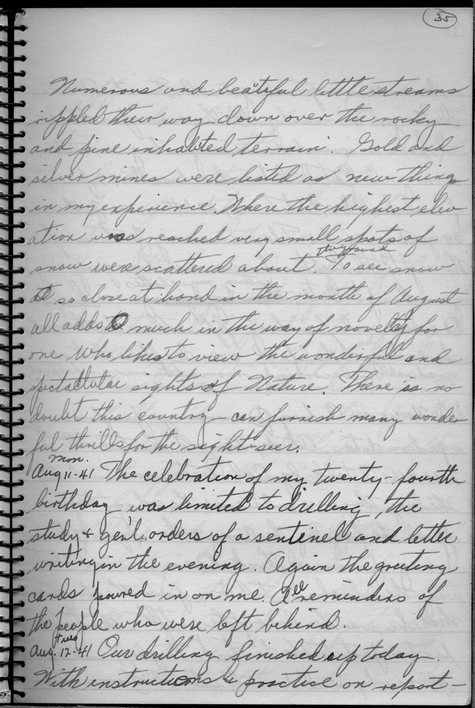 35
Numerous and beatiful little streams
rippled their way down over the rocky
and pine inhabited terrain. Gold and
silver mines were listed as new things
in my experience. Where the highest elev-
ation was reached very small spots of
snow were scattered about. To see snow
so close at hand in the month of August
all adds much in the way of novelty for
one who likes to view the wonderful and
spectactular sights of Nature. There is no
doubt this country can furnish many wonder
ful thrills for the sight-seer.
Mon.
Aug 11-41 The celebration of my twenty-fourth
birthday was limited to drilling, the
study + gen'l orders of a sentinel and letter
writing in the evening. Again the greeting
cards poured in on me. All reminders of
the people who were left behind.
Tues
Aug. 12-41 Our drilling finished up today.
With instructions & practice on report-